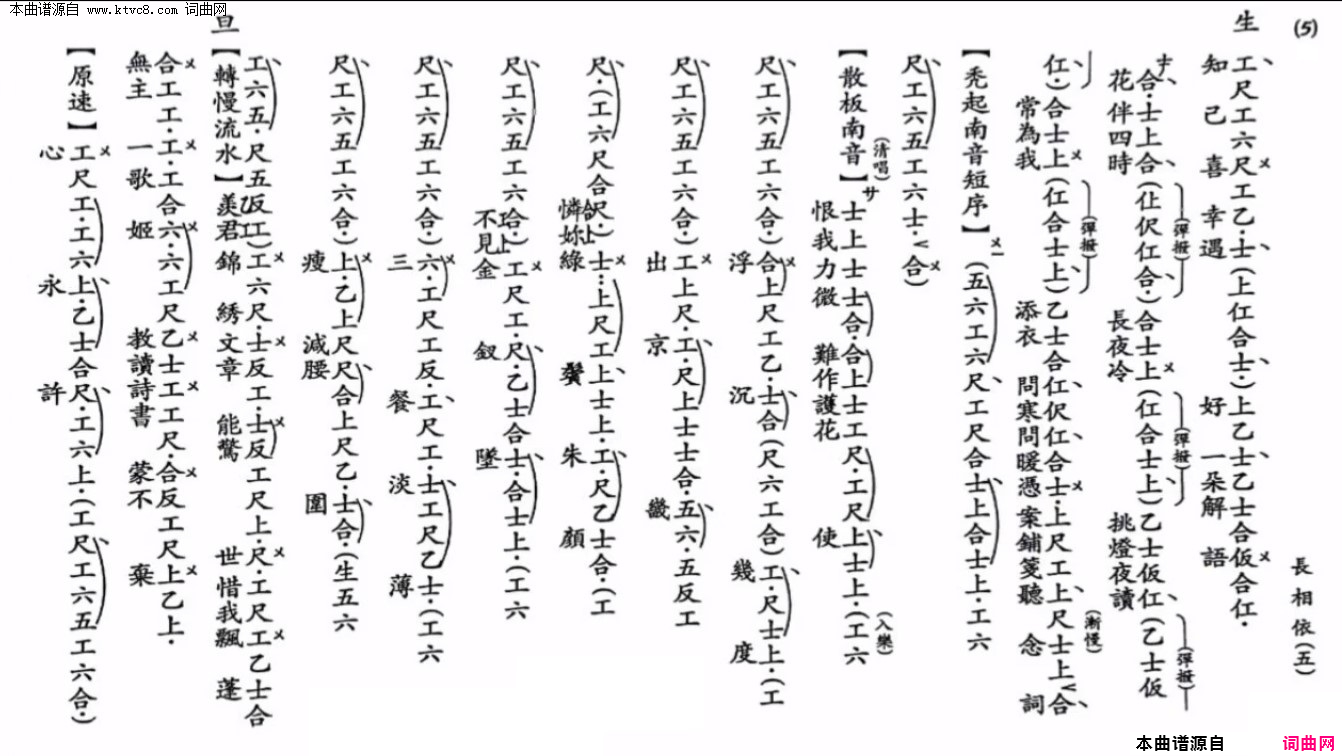 本曲谱源自 www.ktvc8.com 词曲网
(5)
長相依(五)
生
工尺工六尺工乙·士(上伬合士·)上乙士乙士合仮合仜·
知己喜幸遇 好一朵解語
合·士上合(仩伬仜合·)合士上(仜合士上)乙士仮仜(乙士仮
(彈撥) (彈撥) (彈撥)
花伴四時 長夜冷 挑燈夜讀
仜·)合士上(仜合士上)乙士合仜伬仜合士·上尺工上尺士上合
(彈撥) (漸慢)
常為我 添衣 問寒問暖憑案鋪箋聽念詞
【禿起南音短序】(五六工六尺工尺合士上合士上·工六
尺工六五工六士·合)
【散板南音】(清唱)サ士上士士合·合上士工尺·工尺上士上·(工六
(入樂)
恨我力微 難作護花 使
尺工六五工六合·)合上尺工乙·士合(尺六工合)工·尺士上·(工
浮 沉 幾度
尺工六五工六合·)工上尺·工·尺上士士合·五六·五反工
出 京 畿
尺·(工六尺合尺·)士·上尺工上士上·工·尺乙士合·(工
合上
憐妳綠 鬢 朱 顏
尺工六五工六合)工尺工·尺·乙士合士·合士上·(工六
尺上
不見金 釵 墜
尺工六五工六合·)六·工尺工反·工尺工·士工尺乙士·(工六
三 餐 淡 薄
尺工六五工六合·)上·乙上尺尺合上尺乙·士合·(生五六
瘦 減腰 圍
旦
工六五·尺五反工)工六尺·士反工·士反工尺上·尺·工尺工乙士合
【轉慢流水】羨君錦繡文章 能驚 世惜我飄蓬
合工工·工·工合六·六工尺乙士工工尺·合反工尺上乙上·
無主一歌姬 教讀詩書 蒙不棄
【原速】工尺工·工六上·乙士合尺·工六上·(工尺工六五·工六合·)
心 永 許
本曲谱源自 词曲网